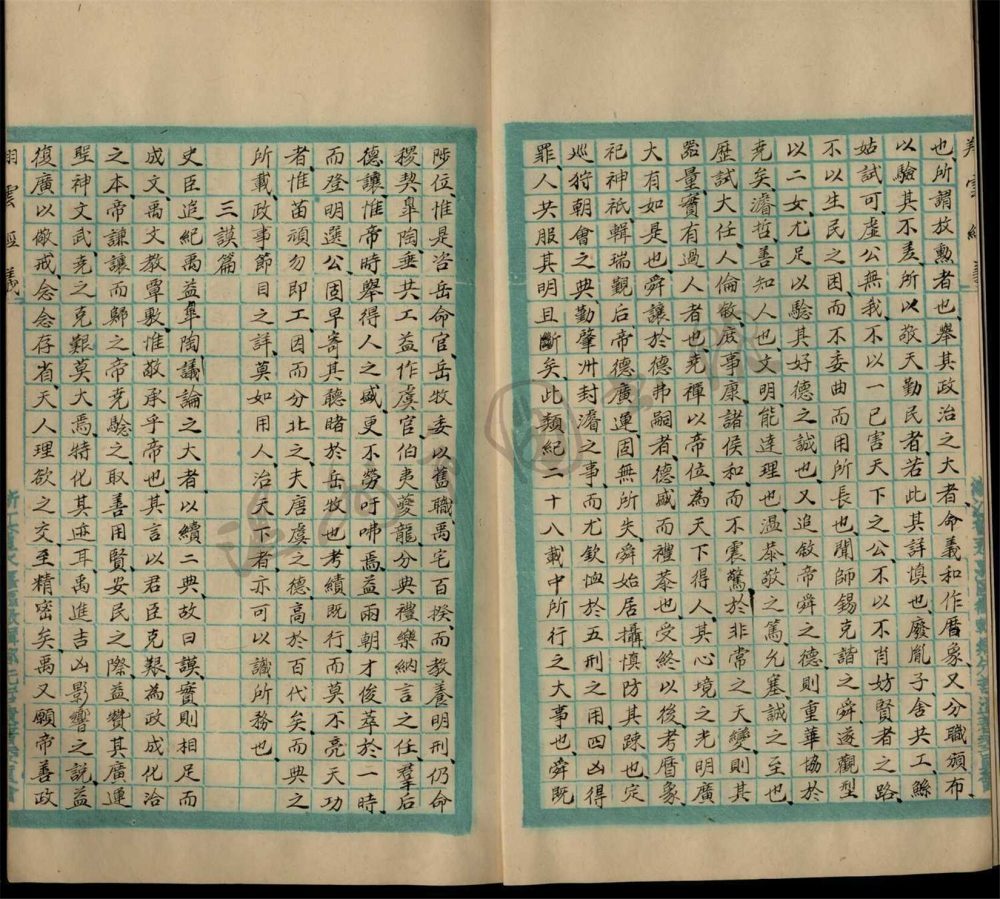 也、所謂放勲者也、舉其政治之大者、命羲和作曆象、又分職頒布、
以驗其不差、所以敬天勤民者、若此其詳慎也、廢胤子、舍共工、鯀
姑試可、虛公無我、不以一己害天下之公、不以不肖妨賢者之路、
不以生民之困、而不委曲而用所長也、聞師錫克諧之舜、遂觀型
以二女、尤足以驗其好德之誠也、又追敘帝舜之德、則重華協於
堯矣、濬哲、善知人也、文明能達理也、溫恭敬之篤、允塞誠之至也、
歷試大任、人倫敏、庶事康、諸侯和、而不震驚於非常之天變、則其
器量、實有過人者也、堯禪以帝位、為天下得人、其心境之光明廣
大有如是也、舜讓於德弗嗣者、德盛而禮恭也、受終以後、考曆象、
祀神祇、輯瑞觀后、帝德廣運、固無所失、舜始居攝、慎防其踈也、定
巡狩朝會之典、勤肇州封濬之事、而尤欽恤於五刑之用、四凶得
罪、人共服其明且斷矣、此類紀二十八載中所行之大事也、舜既
陟位、惟是咨岳命官、岳牧委以舊職、禹宅百揆、而教養明刑、仍命
稷契臯陶、垂共工、益作虞官、伯夷夔龍、分典禮樂納言之任、羣后
德讓、惟帝時舉、得人之盛、更不勞吁咈焉、益兩朝才俊、萃於一時、
而登明選公、固早寄其聽睹於岳牧也、考績既行、而莫不亮天功
者、惟苗頑勿即工、因而分北之、夫唐虞之德、高於百代矣、而典之
所載、政事節目之詳、莫如用人、治天下者、亦可以識所務也、
三謨篇
史臣追紀禹益臯陶議論之大者、以續二典、故曰謨、實則相足而
成文、禹文教覃敷、惟敬承乎帝也、其言以君臣克艱、為政成化洽
之本、帝謙讓而歸之帝堯、驗之取善用賢安民之際、益贊其廣運
聖神文武、堯之克艱莫大焉、特化其迹耳、禹進吉凶影響之說、益
復廣以儆戒、念念存省、天人理欲之交、至精密矣、禹又願帝善政